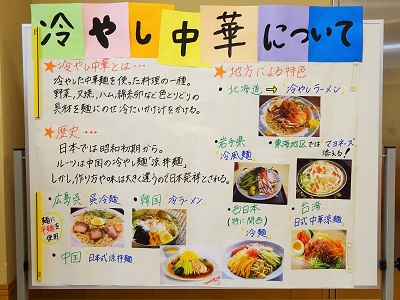 冷やし中華について
★冷やし中華とは…
冷やした中華麺を使った料理の一種。
野菜、叉焼、ハム、錦糸卵など色とりどりの
具材を麺にのせ冷たいかけ汁をかける。
★歴史…
日本では昭和初期から。
ルーツは中国の冷やし麺「涼拌麺」
しかし、作り方や味は大きく違うので日本発祥とされる。
・広島呉 呉冷麺
麺に平麺を使用
・韓国 冷ラーメン
・中国 日本式涼拌麺
★地方による特色
・北海道 → 冷やしラーメン。
・岩手県
冷風麺
・東海地区ではマヨネーズ
添える!
・西日本
(特に関西)
冷麺
・台湾
日式中華涼麺